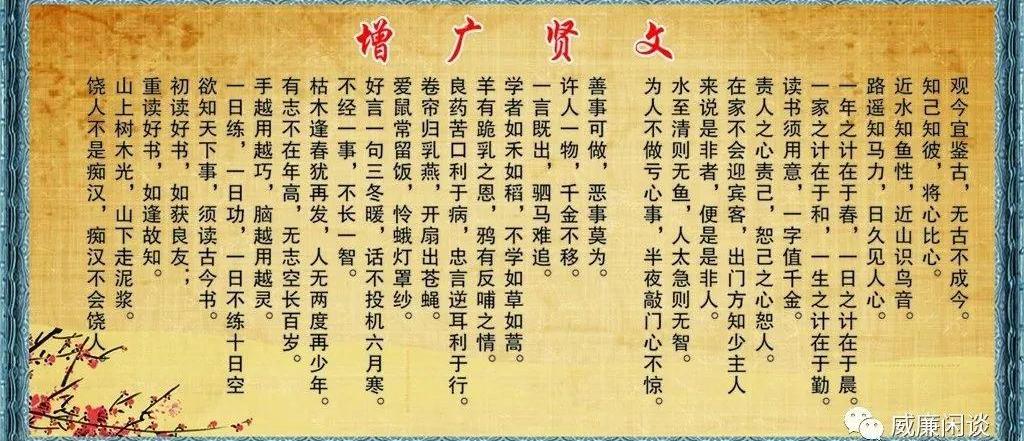 增广贤文
观今宜鉴古，无古不成今。
知己知彼，将心比心。
近水知鱼性，近山识鸟音。
路遥知马力，日久见人心。
一年之计在于春，一日之计在于晨。
一家之计在于和，一生之计在于勤。
读书须用意，一字值千金。
责人之心责己，恕己之心恕人。
在家不会迎宾客，出门方知少主人
来说是非者，便是是非人。
水至清则无鱼，人太急则无智。
为人不做亏心事，半夜敲门心不惊。
善事可做，恶事莫为。
许人一物，千金不移。
一言既出，驷马难追。
学者如禾如稻，不学如草如蒿。
羊有跪乳之恩，鸦有反哺之情。
良药苦口利于病，忠言逆耳利于行。
卷帘归乳燕，开扇出苍蝇。
爱鼠常留饭，怜蛾灯罩纱。
好言一句三冬暖，话不投机六月寒。
不经一事，不长一智。
枯木逢春犹再发，人无两度再少年。
有志不在年高，无志空长百岁。
手越用越巧，脑越用越灵。
一日练，一日功，一日不练十日空
欲知天下事，须读古今书。
初读好书，如获良友；
重读好书，如逢故知。
山上树木光，山下走泥浆。
饶人不是痴汉，痴汉不会饶人
威廉闲谈